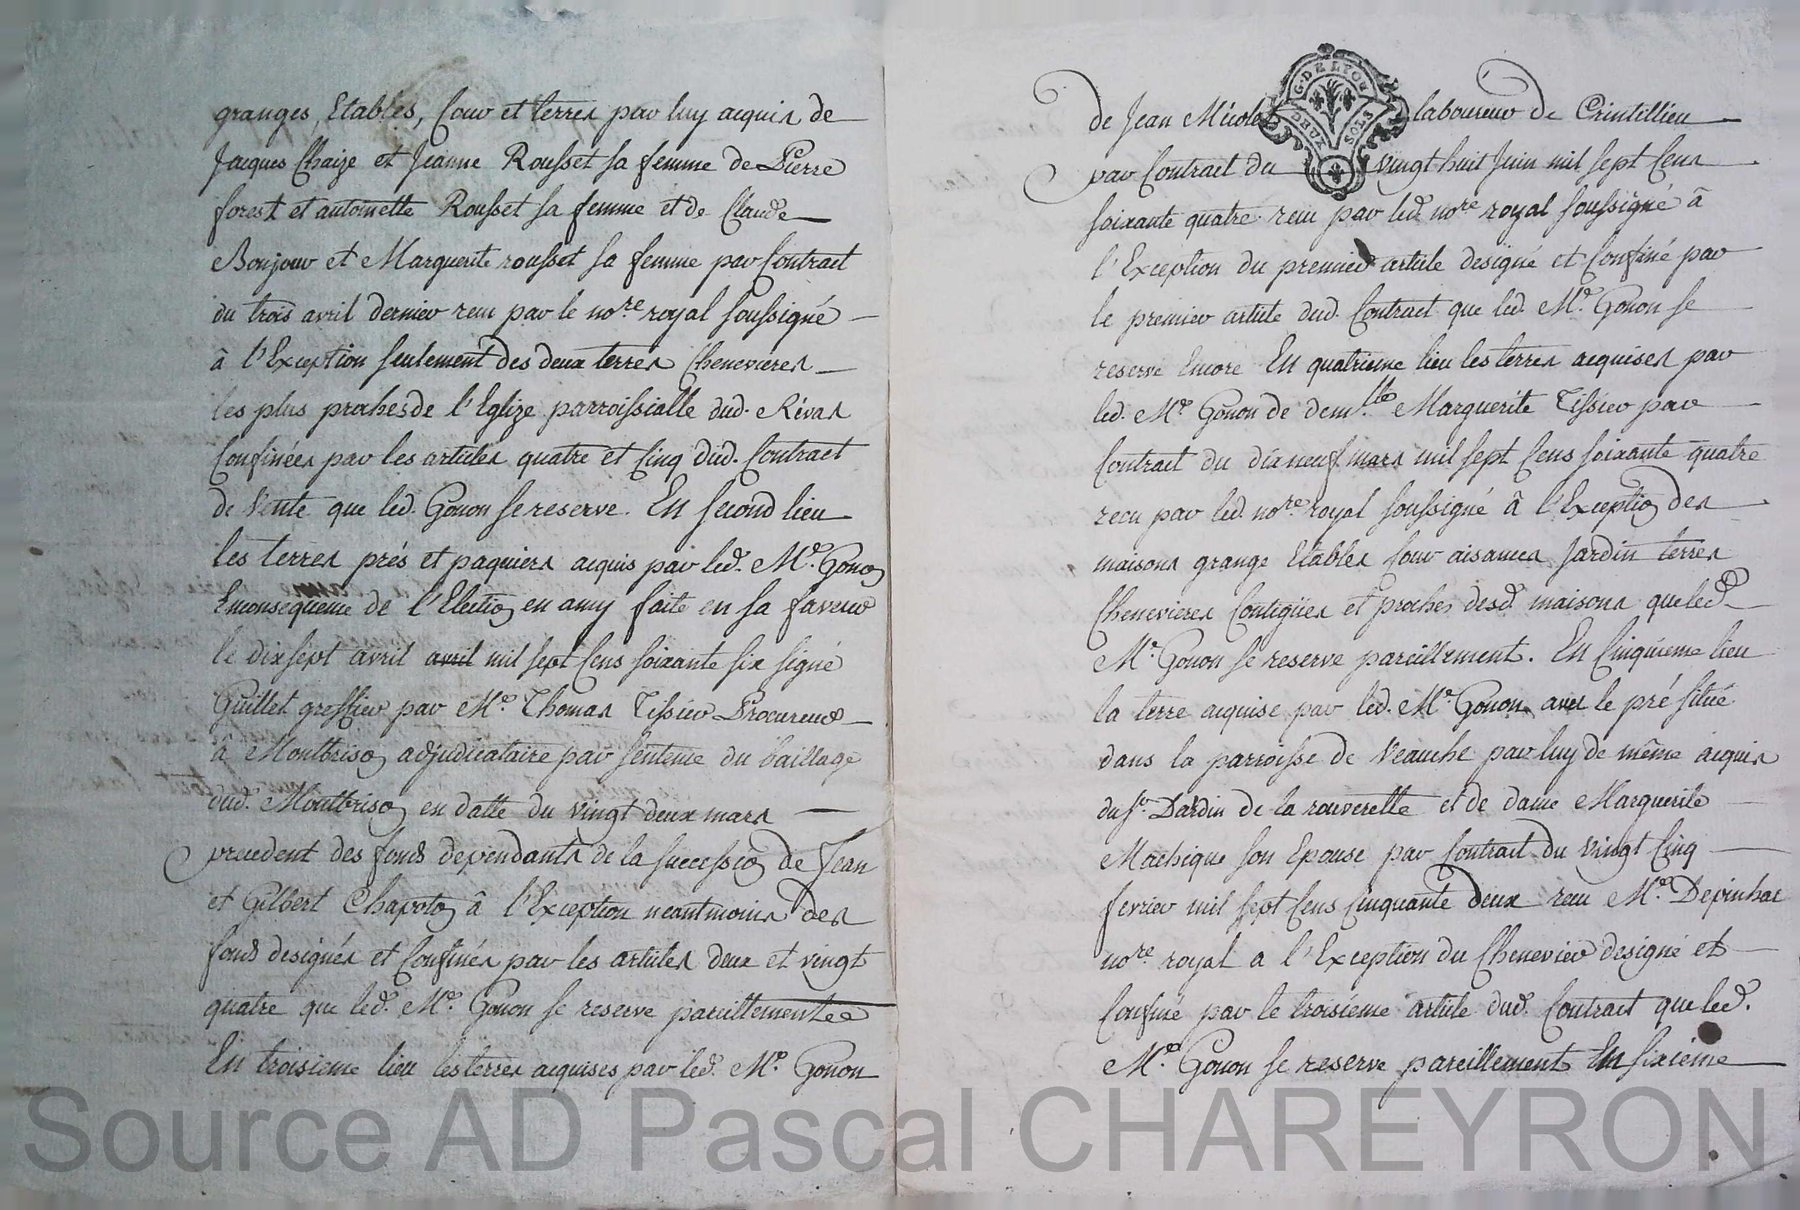 granges, Etables, Cour et terres par luy acquis de
Jacques Chaize et Jeanne Rousset sa femme de Pierre
forest et antoinette Rousset sa femme et de Claude
Bonjour et Marguerite rousset sa femme par Contract
du trois avril dernier recu par le no.re royal soussigné
â l'Exception seulement des deux terres Chenevieres
les plus proches de l'Eglize parroissialle dud. Révas
Confinées par les articles quatre et Cinq dud. Contract
de Vente que led. Gonon se reserve. En second lieu
les terres prés et paquiers acquis par led. Me. Gonon
Enconsequence de l'Election en amy faite en sa faveur
le dix sept avril avril mil sept Cens soixante six signé
Guillet greffier par Me. Thomas Tissier Procureur
â Montbrison adjudicataire par sentence du bailliage
dud. Montbrison en datte du vingt deux mars
precedent des fonds dependants de la succession de Jean
et Gilbert Chapoton â l'Exception neantmoins des
fonds designés et Confinés par les articles deux et vingt
quatre que led. Me. Gonon se reserve pareillement
En troisieme lieu les terres acquises par led. Me. Gonon
G. DE LYON
DEUX SOLS
de Jean Micolet laboureur de Crintillieu
par Contract du vingt huit Juin mil sept Cens
soixante quatre recu par led. no.re royal soussigné â
l'Exception du premier article designé et Confiné par
le premier article dud. Contract que led. Me. Gonon se
reserve Encore En quatrieme lieu les terres acquises par
led. Me. Gonon de dem.lle Marguerite Tissier par
Contract du dix neuf mars mil sept Cens soixante quatre
recu par led. no.re royal soussigné â l'Exception des
maisons grange Etables four aisances Jardin terres
Chenevieres Contigües et proches desd. maisons que led.
Me. Gonon se reserve pareillement. En Cinquieme lieu
la terre acquise par led. Me. Gonon avec le pré situé
dans la parroisse de Veauche par luy de même acquis
du Sr. Dardin de la rouverette et de dame Marguerite
Machique son Epouse par Contract du vingt Cinq
fevrier mil sept Cens Cinquante deux recu Me. Depinhac
no.re royal a l'Exception du Chenevier designé et
Confiné par le troisieme article dud. Contract que led.
Me. Gonon se reserve pareillement En sixieme
Source AD Pascal CHAREYRON